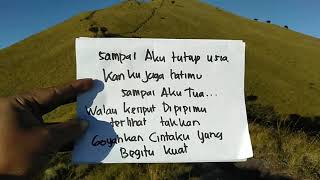 Sampai Aku tutup usia
Kan ku jaga hatimu
sampai Aku Tua...
Walau keriput Dipipimu
terlihat takkan
Goyahkan Cintaku yang
Begitu kuat